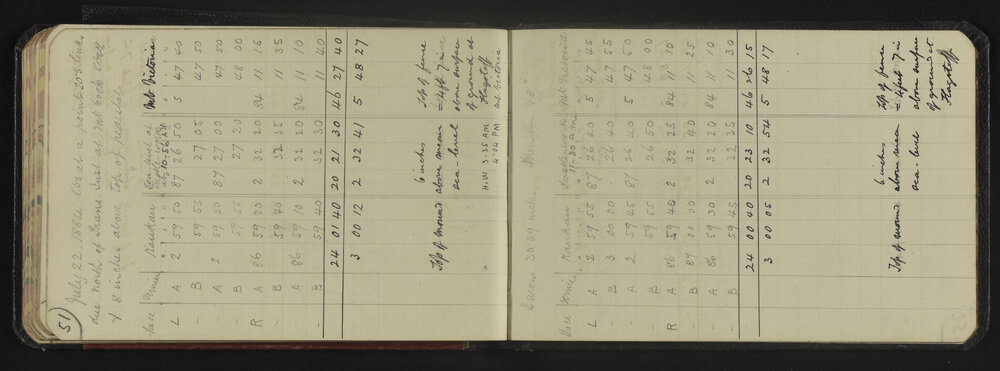 51
July 22, 1884. Obsd at a point 20.5 links
due north of Trans. Inst at Mt Cook Obsy
& 8 inches above top of pedestal
Face Vernier Kaukau Sea-level at 10-56 A.M. Mt Victoria
L A 2 59 50 87 26 50 5 47 40
– B 59 55 27 05 47 50
– A 2 59 50 87 27 00 5 47 50
– B 59 55 27 20 48 00
R A 86 59 20 2 32 20 84 11 15
– B 59 40 32 35 11 35
– A 86 59 10 2 32 20 84 11 10
– B 59 40 32 30 11 40
24 01 40 20 21 30 46 27 40
3 00 12 2 32 41 5 48 27
Top of mound 6 inches above mean sea-level Top of fence = 4 feet 7 in above surface of ground at Flagstaff Mt Victoria
H.W 3-35 A.M.
4:04 PM
Barom 30.09 inches
Face Vernier Kaukau 11-30 a m Mt Victoria
L A 2 59 55 87 26 40 5 47 45
– B 3 00 00 26 40 47 25
– A 2 59 45 87 26 40 5 47 50
– B 59 55 26 50 48 00
R A 86 59 40 2 32 25 84 11 10
– B 87 00 00 32 40 11 25
– A 86 59 30 2 32 20 84 11 10
– B 59 45 32 35 11 30
24 00 40 20 23 10 46 26 15
3 00 05 2 32 54 5 48 17
Top of mound 6 inches above mean sea-level Top of fence = 4 feet 7 in above surface of ground at Flagstaff